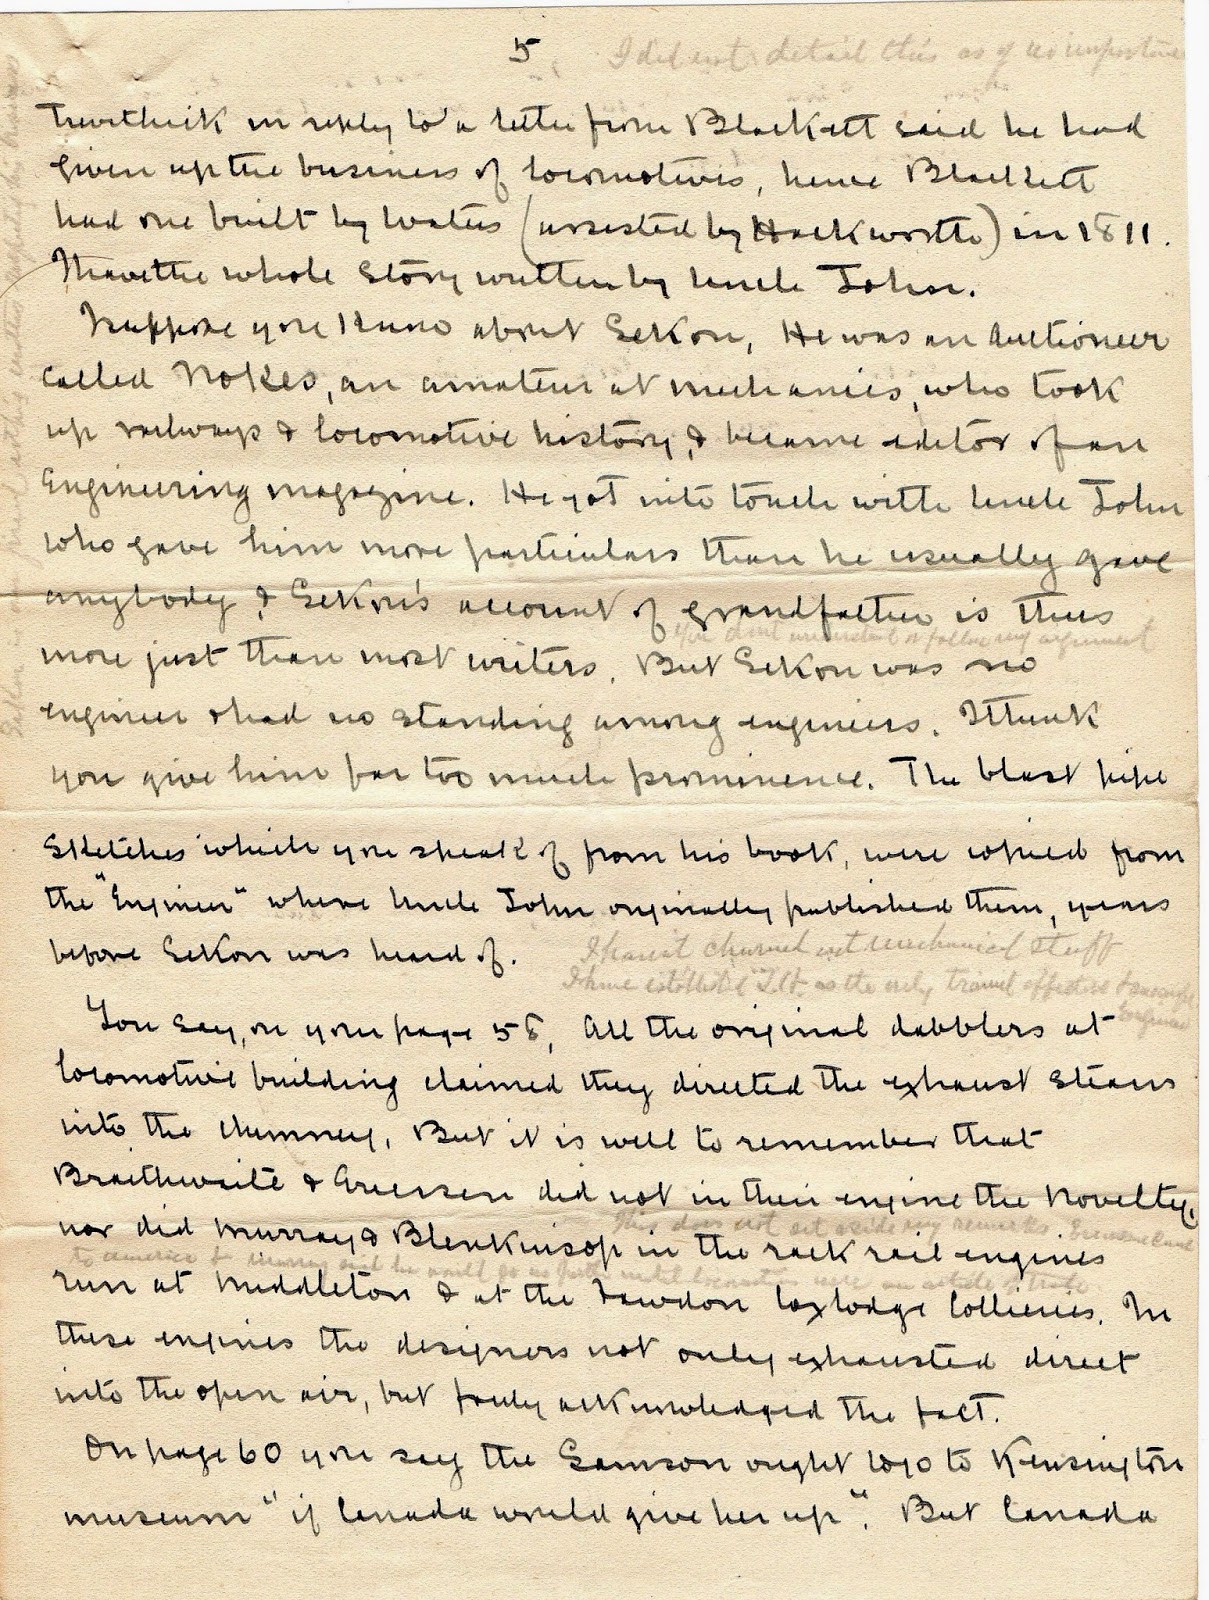 5
I did not detail this as of no importance
Trevithick in reply to a letter from Blackett said he had
given up the business of locomotives, hence Blackett
had one built by Waters (assisted by Hackworth) in 1811.
I have the whole story written by Uncle John.
I suppose you know about Sekon, He was an Auctioneer
called Nokes, an amateur at mechanics, who took
up railways & locomotive history, & became editor of an
Engineering magazine. He got into touch with Uncle John
who gave him more particulars than he usually gave
anybody, & Sekon's account of grandfather is thus
You don't understand or follow my argument
more just than most writers. But Sekon was no
engineer & had no standing among engineers. I think
you give him far too much prominence. The blast pipe
sketches which you speak of from his book, were copied from
the "Engineer" where Uncle John originally published them, years
before Sekon was heard of.
I haven't churned out mechanical stuff
I have established T.H. as the only
You say, on your page 58, All the original dabblers at
locomotive building claimed they directed the exhaust steam
into the chimney. But it is well to remember that
Braithwaite & Ericssen did not in their engine the Novelty,
This does not set aside my remarks.
nor did Murray & Blenkinsop in the rack rail engines
to America &
run at Middleton & at the Fawdon Coxlodge Collieries. In
these engines the designers not only exhausted direct
into the open air, but freely acknowledged the fact.
On page 60 you say the Samson ought to go to Kensington
museum "if Canada would give her up". But Canada